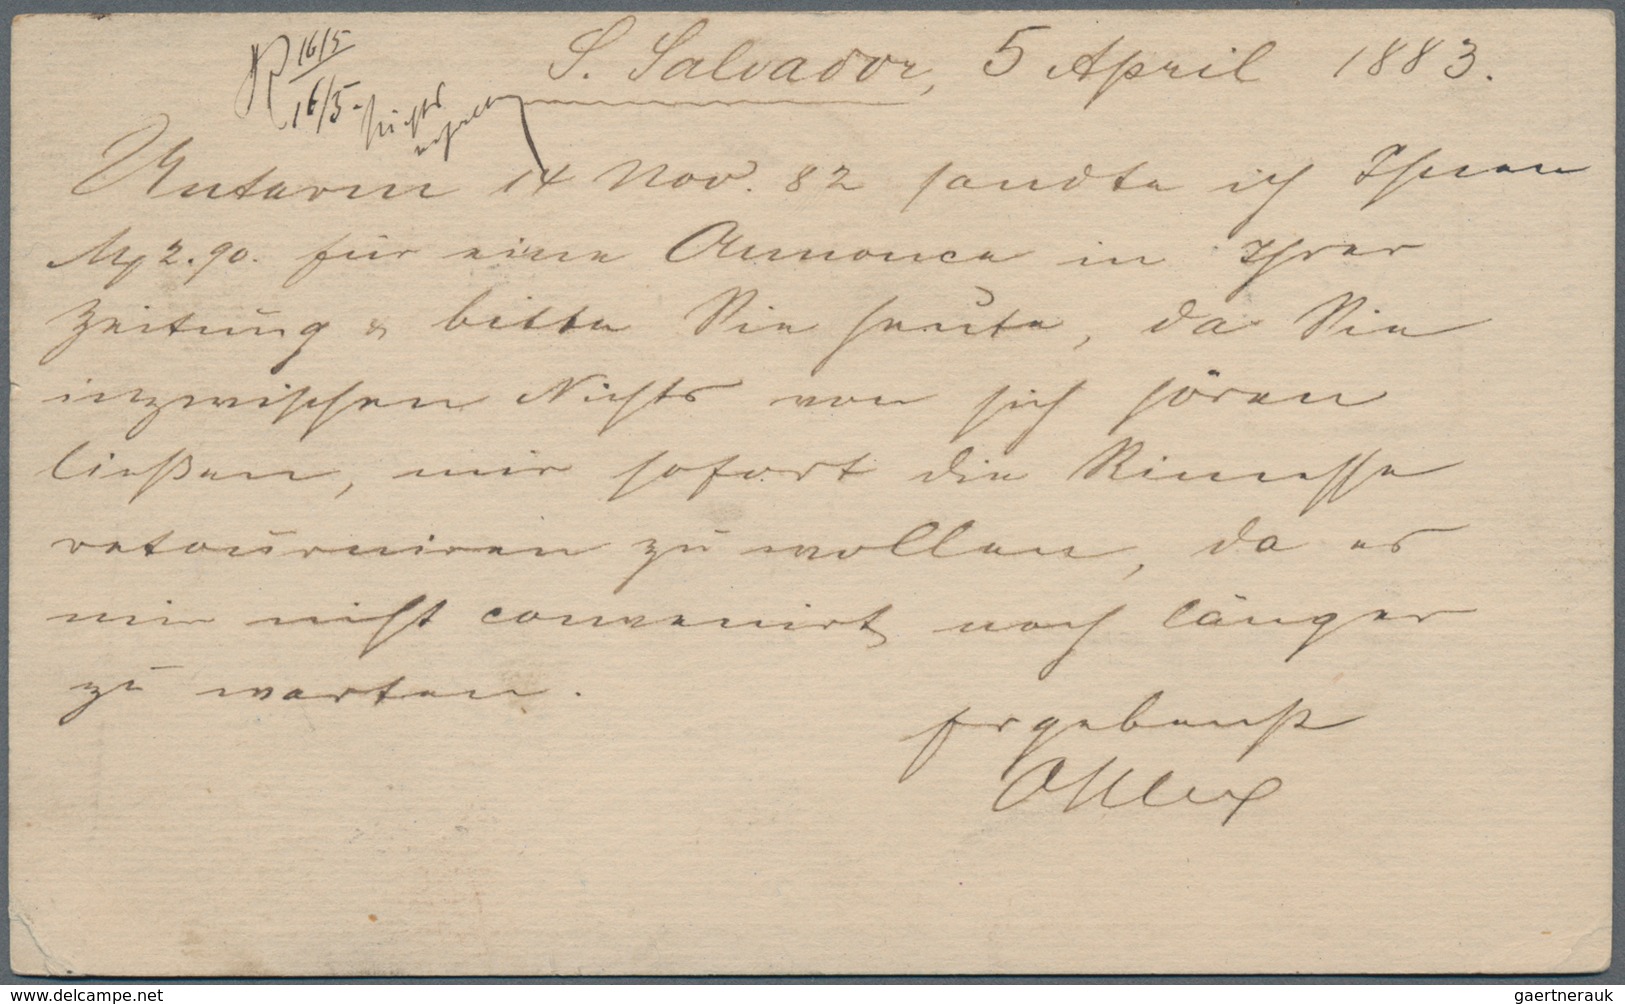 R 16/5
16/5. Nichts
erhalten
S. Salvador, 5 April 1883.
Unterm 14 Nov. 82 sandte ich Ihnen
M 2.90. für eine Annonce in Ihrer
Zeitung & bitte Sie heute, da Sie
inzwischen Nichts von sich hören
ließen, mir sofort die Rimesse
retourniren zu wollen, da es
mir nicht convenirt noch länger
zu warten.
Ergebenst
delcampe.net
gaertnerauk